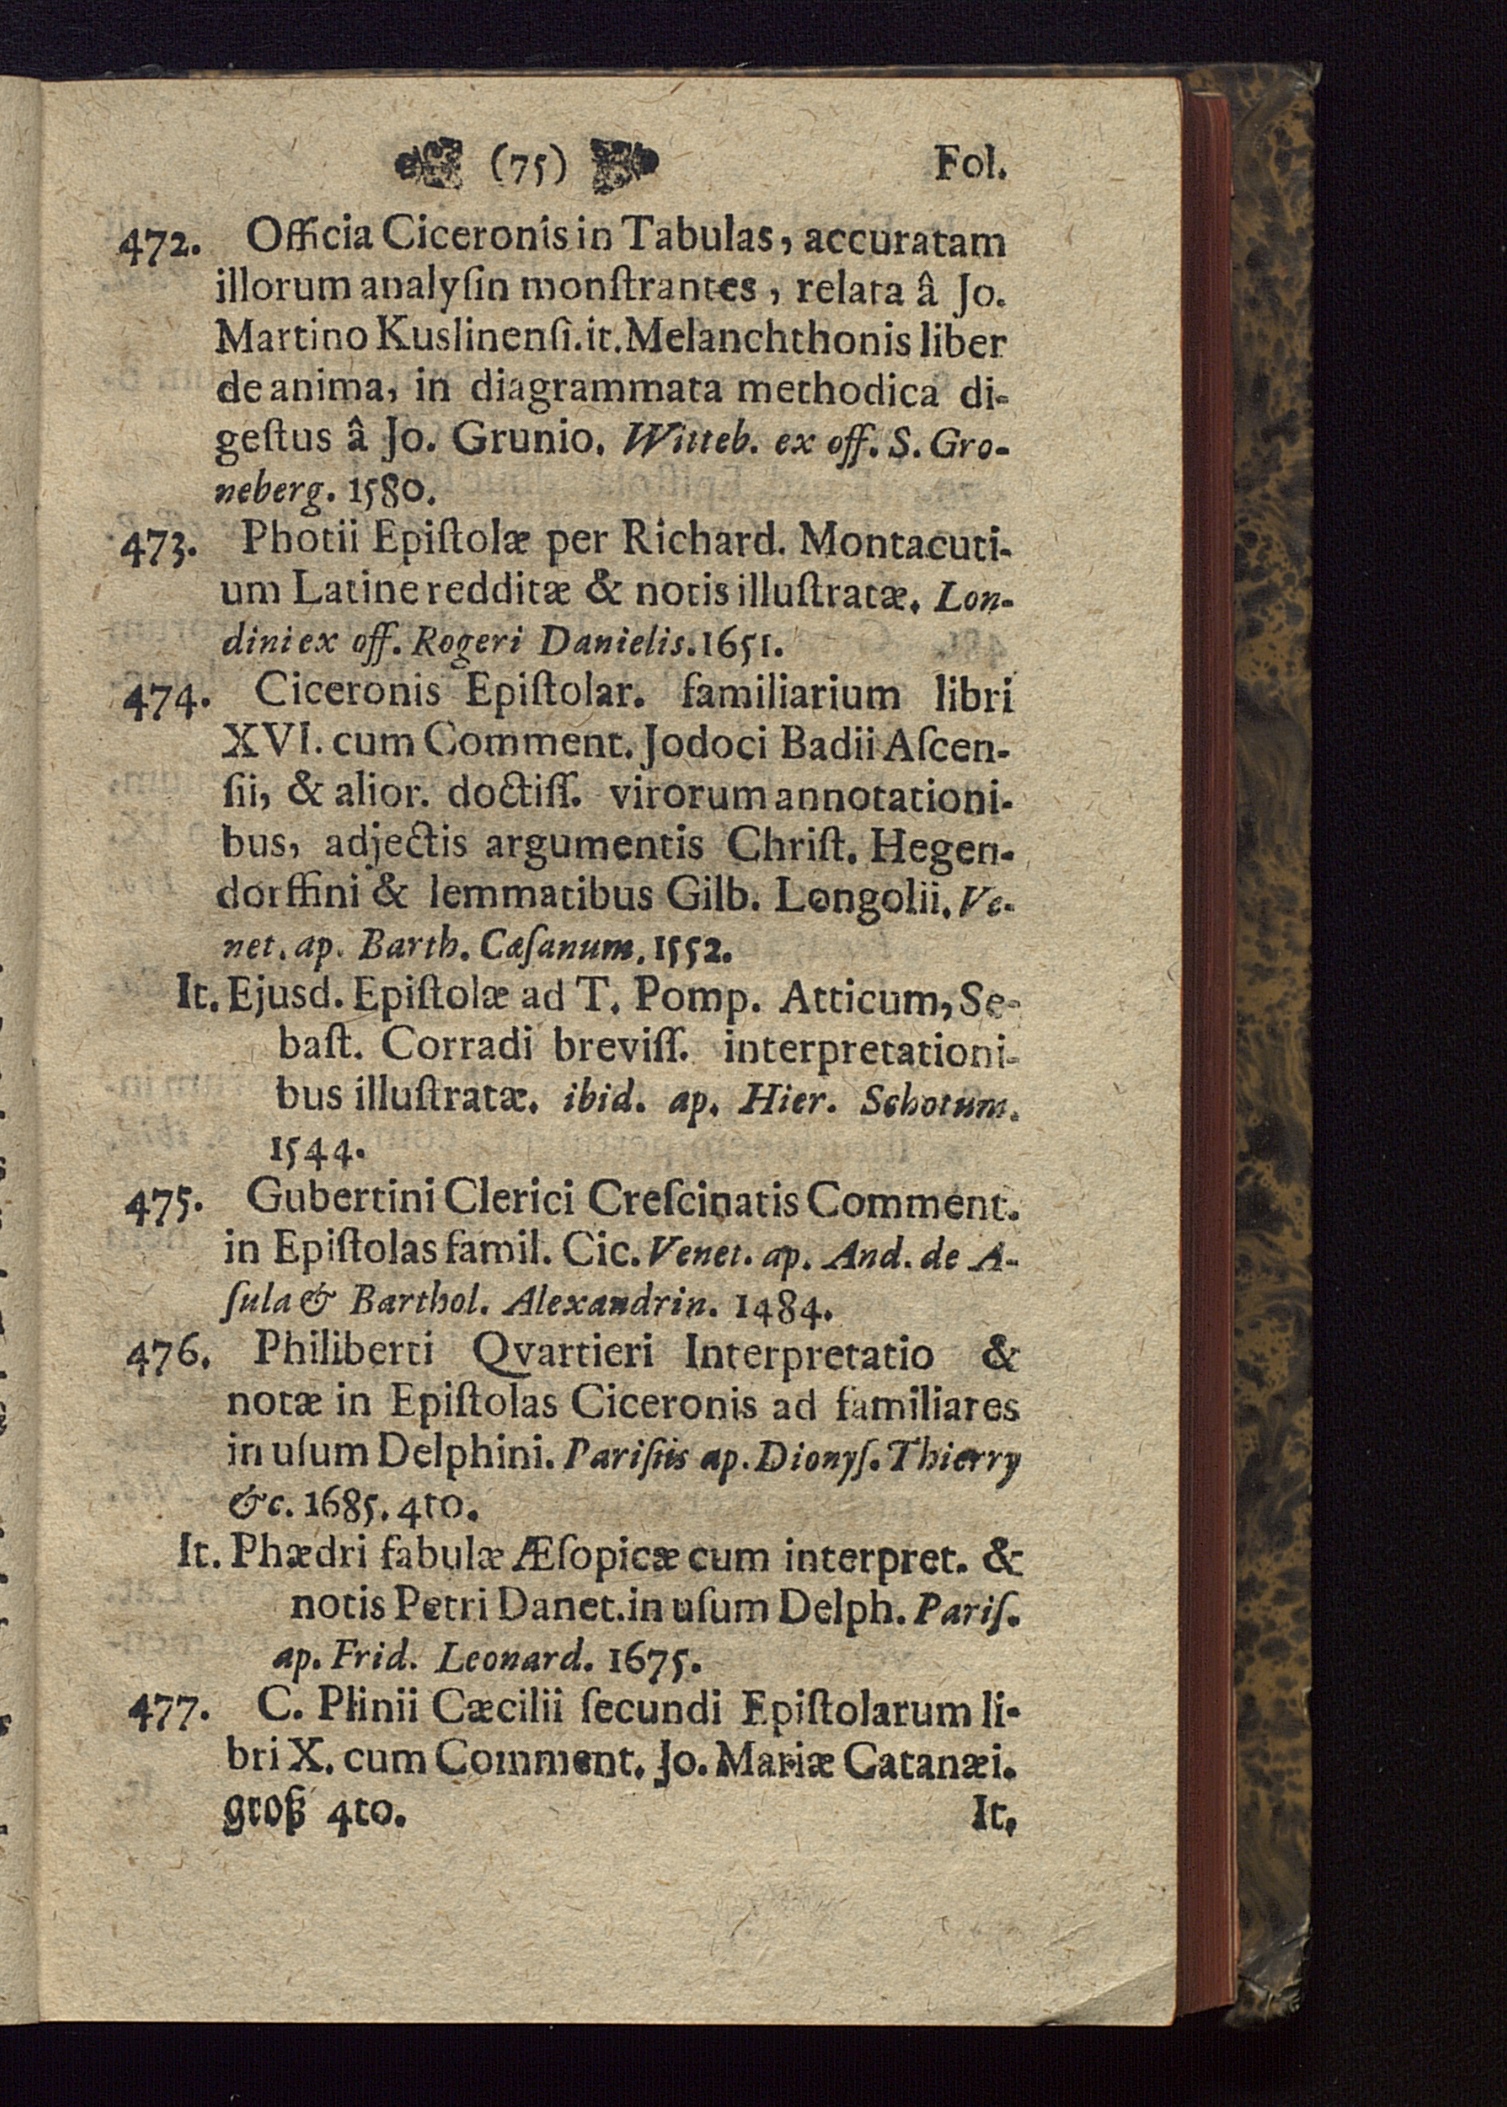 (75) Fol.
472. Officia Ciceronis in Tabulas, accuratam
illorum analyſin monſtrantes, relata â Jo.
Martino Kuslinenſi. it. Melanchthonis liber
de anima, in diagrammata methodica di-
geſtus â Jo. Grunio. Witteb. ex off. S. Gro-
neberg. 1580.
473. Photii Epiſtolæ per Richard. Montacuti-
um Latine redditæ & notis illuſtratæ. Lon-
dini ex off. Rogeri Danielis. 1651.
474. Ciceronis Epiſtolar. familiarium libri
XVI. cum Comment. Jodoci Badii Aſcen-
ſii, & alior. doctiſſ. virorum annotationi-
bus, adjectis argumentis Chriſt. Hegen-
dorffini & lemmatibus Gilb. Longolii. Ve-
net. ap. Barth. Cæſanum. 1552.
It. Ejusd. Epiſtolæ ad T. Pomp. Atticum, Se-
baſt. Corradi breviſſ. interpretationi-
bus illuſtratæ. ibid. ap. Hier. Schotum.
1544.
475. Gubertini Clerici Creſcinatis Comment.
in Epiſtolas famil. Cic. Venet. ap. And. de A-
ſula & Barthol. Alexandrin. 1484.
476. Philiberti Qvartieri Interpretatio &
notæ in Epiſtolas Ciceronis ad familiares
in uſum Delphini. Pariſiis ap. Dionyſ. Thierry
&c. 1685. 4to.
It. Phædri fabulæ Æſopicæ cum interpret. &
notis Petri Danet. in uſum Delph. Pariſ.
ap. Frid. Leonard. 1675.
477. C. Plinii Cæcilii ſecundi Epiſtolarum li-
bri X. cum Comment. Jo. Mariæ Catanæi.
groß 4to. It.